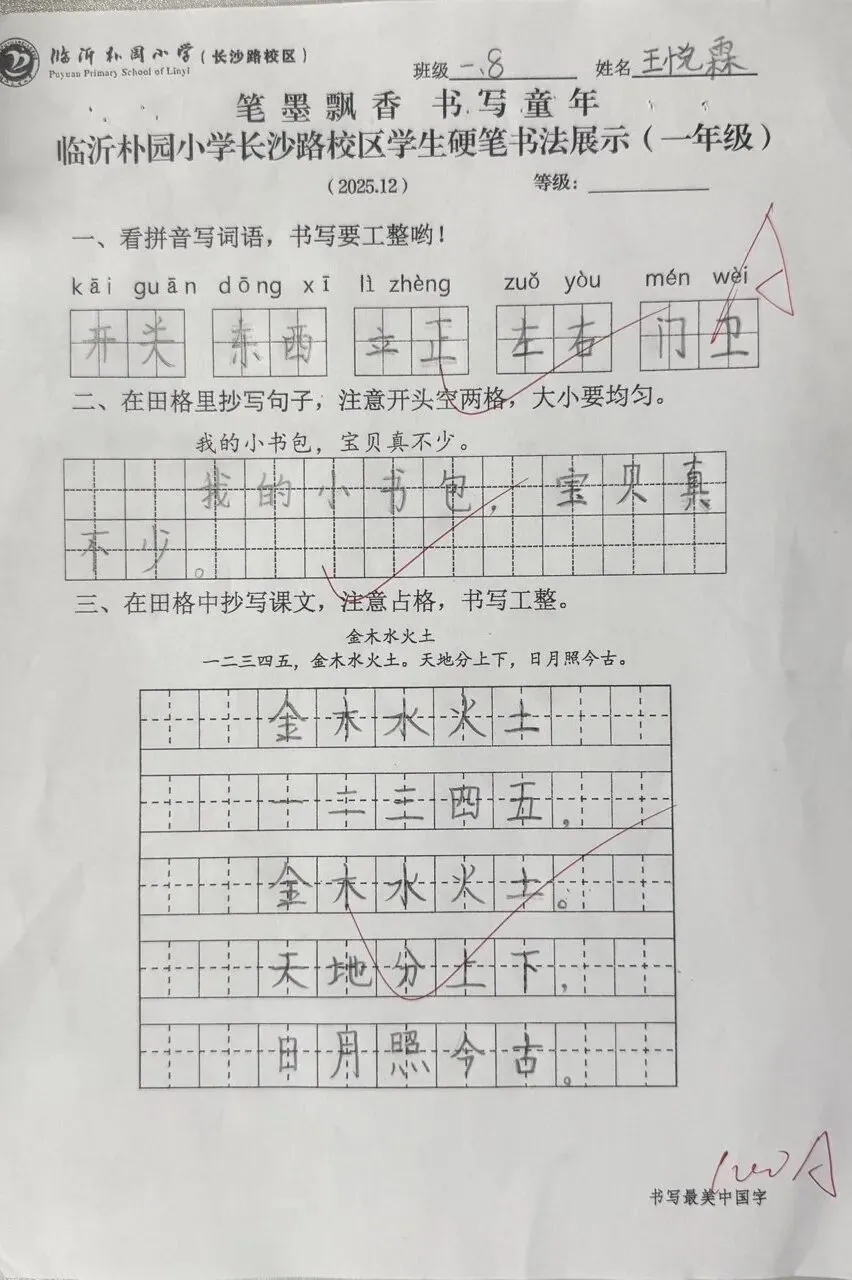 临沂朴园小学（长沙路校区）
Puyuan Primary School of Linyi
班级 一、8 姓名 王悦霖
笔墨飘香 书写童年
临沂朴园小学长沙路校区学生硬笔书法展示（一年级）
（2025.12） 等级：
一、看拼音写词语，书写要工整哟！
kāi guān dōng xī lì zhèng zuǒ yòu mén wèi
开关 东西 立正 左右 门卫
二、在田格里抄写句子，注意开头空两格，大小要均匀。
我的小书包，宝贝真不少。
我的小书包，宝贝真
不少。
三、在田格中抄写课文，注意占格，书写工整。
金木水火土
一二三四五，金木水火土。天地分上下，日月照今古。
金木水火土
一二三四五，
金木水火土。
天地分上下，
日月照今古。
A
书写最美中国字